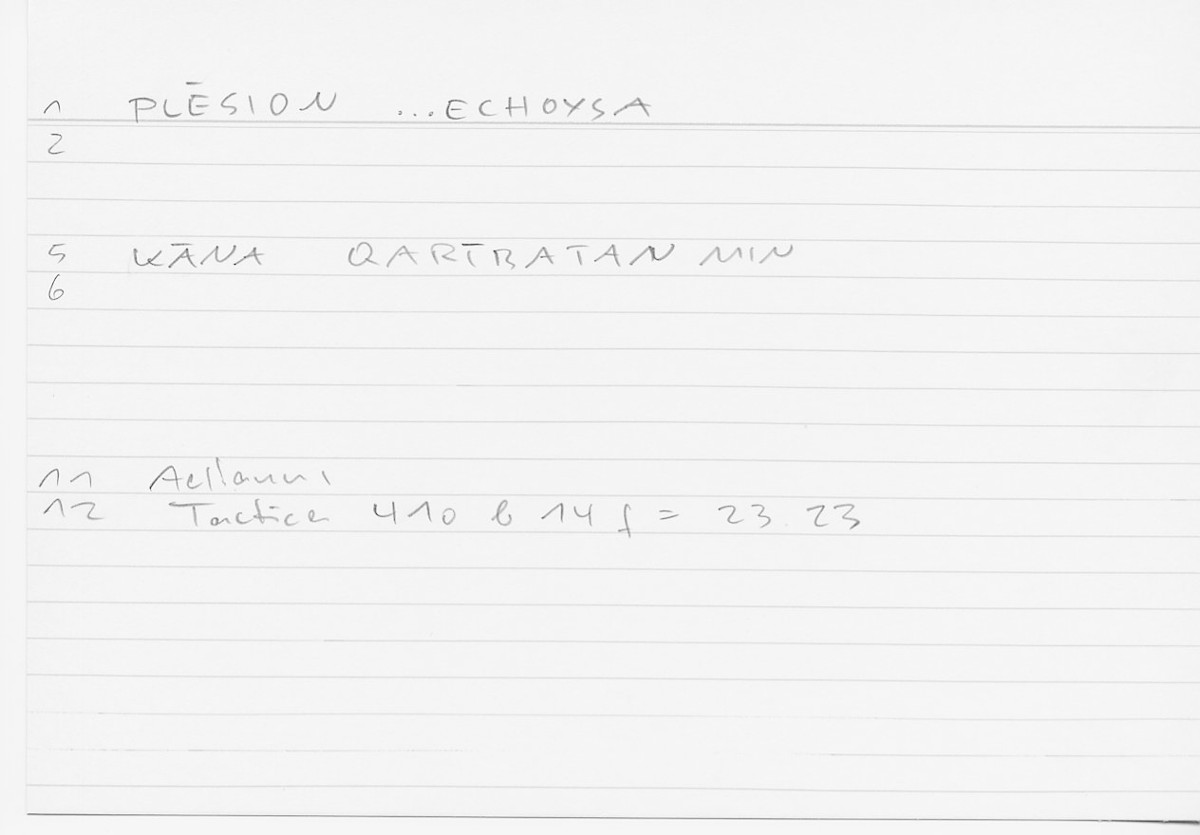 1 PLĒSION ...ECHOYSA
2
5 KĀNA QARĪBATAN MIN
6
11 Aeliani
12 Tactica 410 b 14 f = 23.23